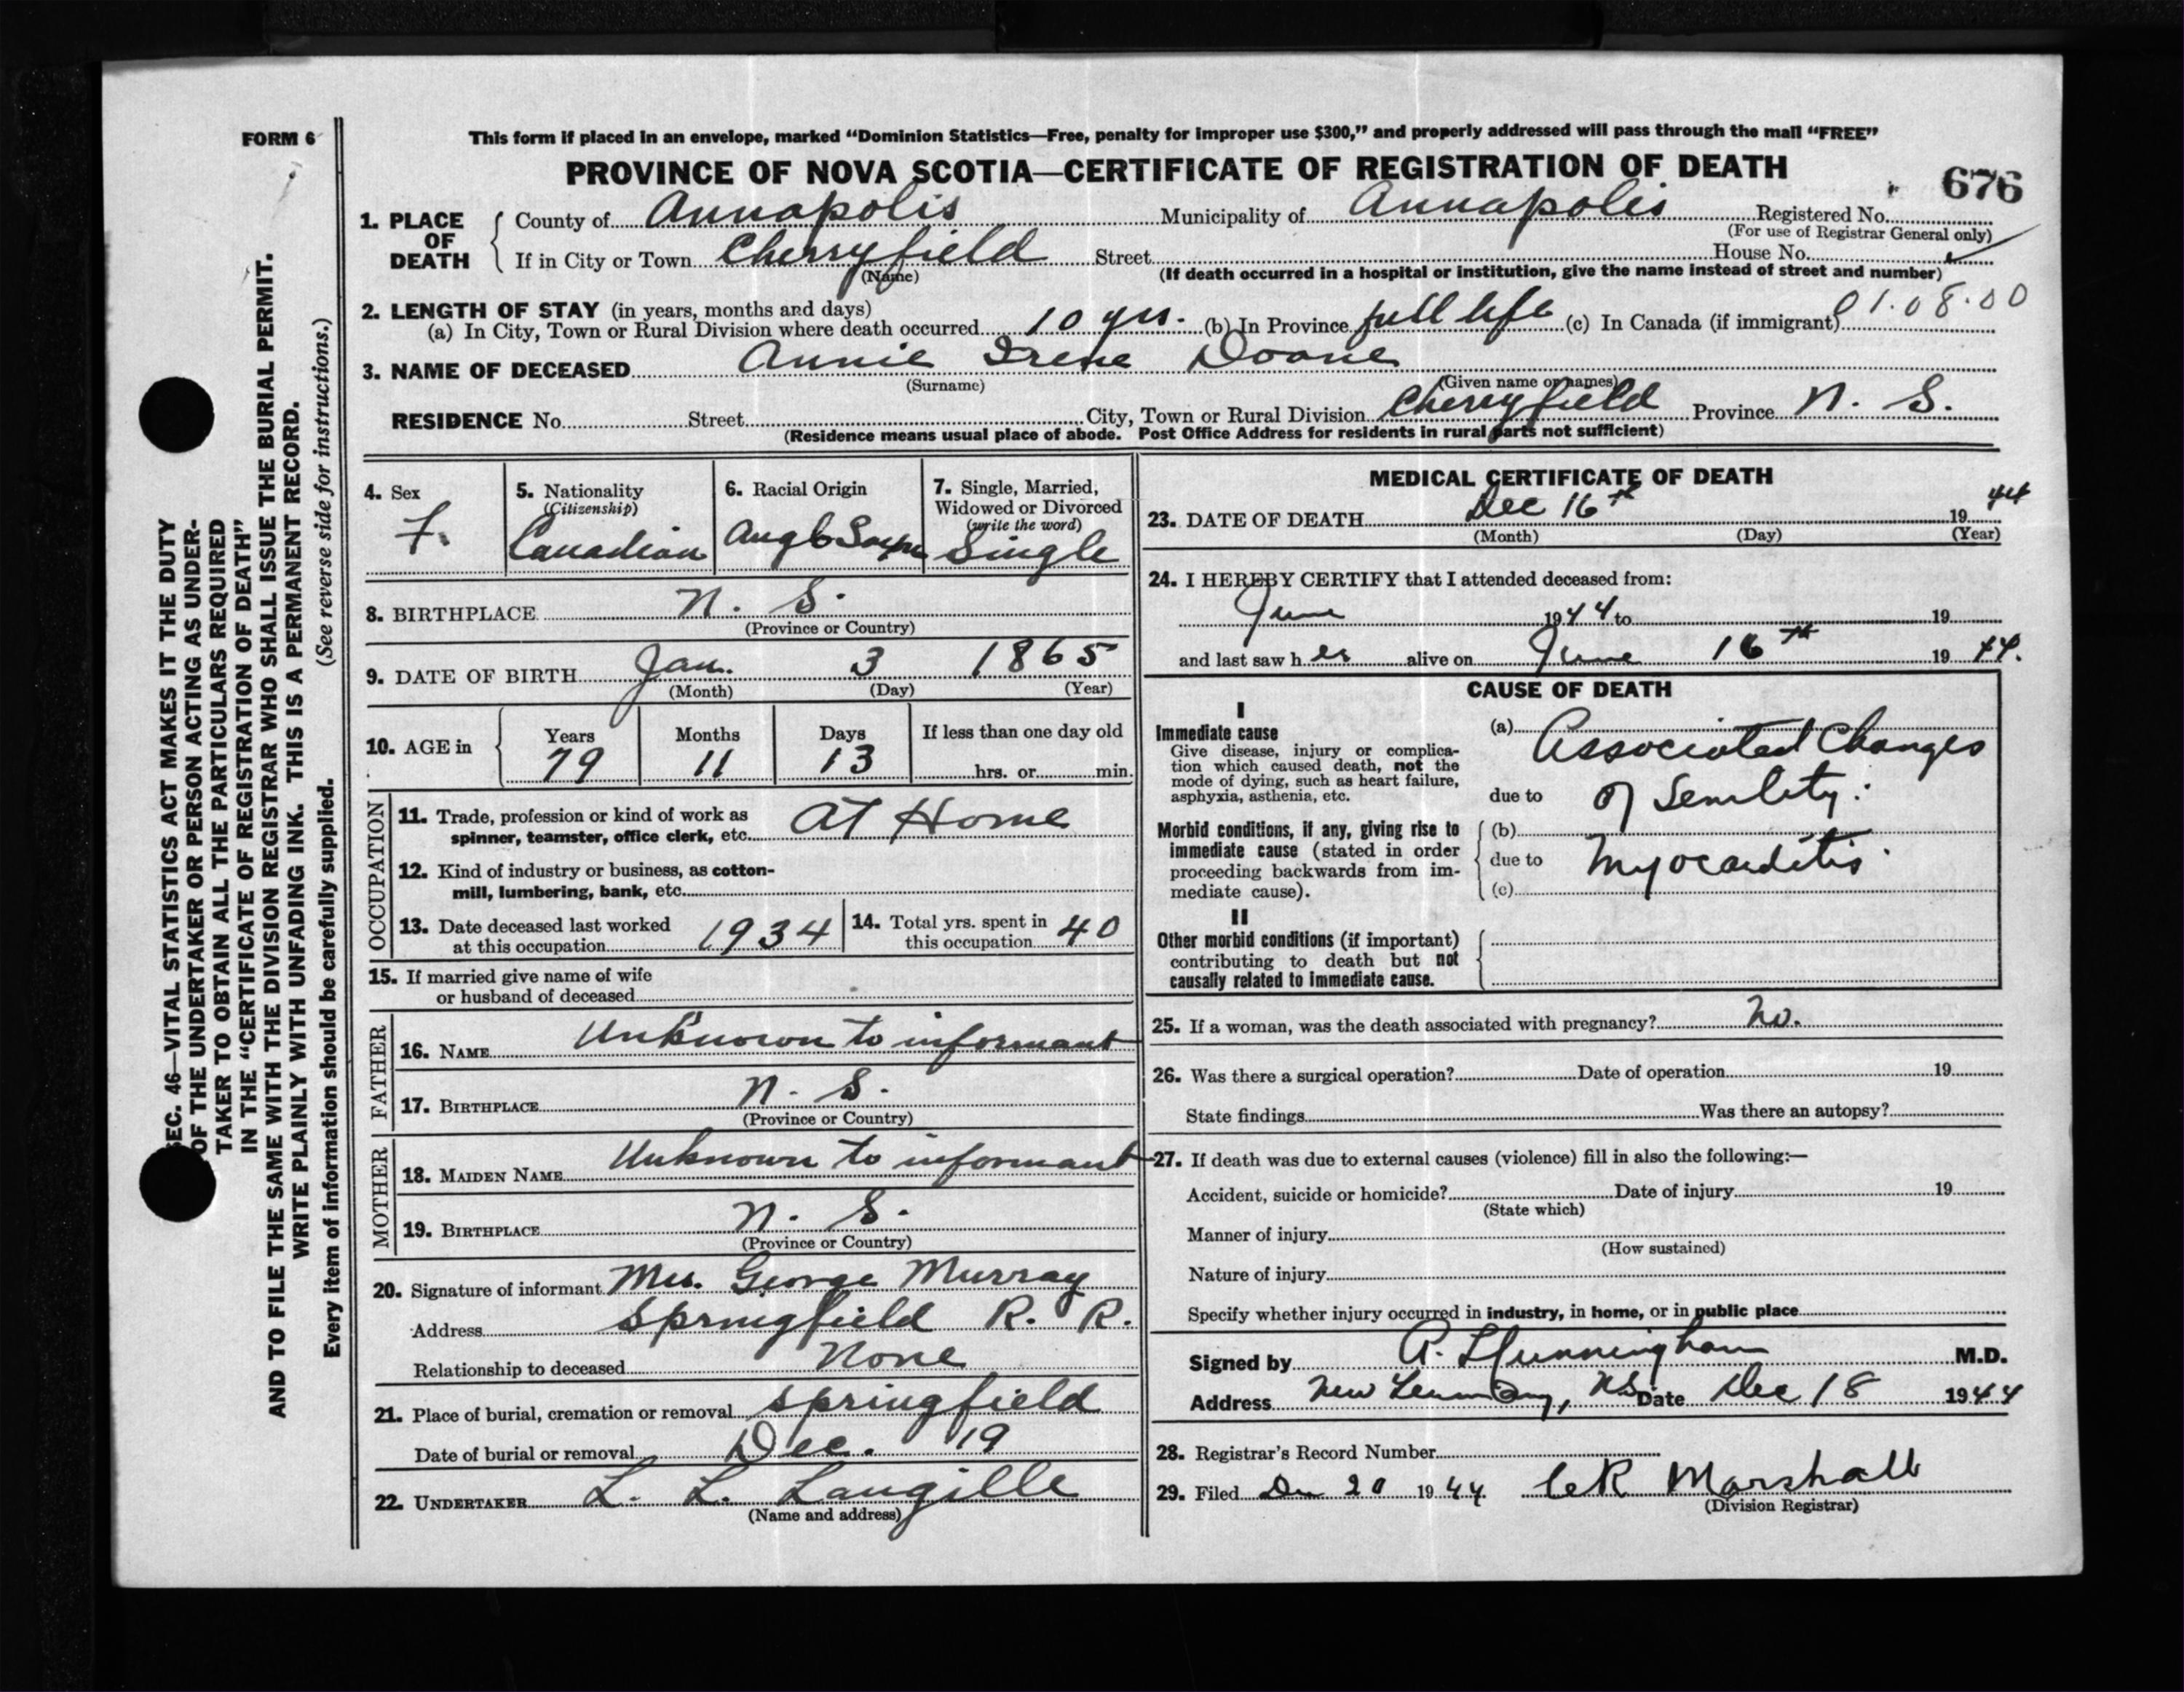 FORM 6
This form if placed in an envelope, marked “Dominion Statistics—Free, penalty for improper use $300,” and properly addressed will pass through the mail “FREE”
PROVINCE OF NOVA SCOTIA—CERTIFICATE OF REGISTRATION OF DEATH
676
1. PLACE OF DEATH
County of Annapolis Municipality of Annapolis Registered No.
(For use of Registrar General only)
If in City or Town Cherryfield Street House No.
(Name) (If death occurred in a hospital or institution, give the name instead of street and number)
2. LENGTH OF STAY (in years, months and days)
(a) In City, Town or Rural Division where death occurred 10 yrs. (b) In Province full life (c) In Canada (if immigrant) 01.08.00
3. NAME OF DECEASED Annie Irene Doane
(Surname) (Given name or names)
RESIDENCE No. Street City, Town or Rural Division Cherryfield Province N. S.
(Residence means usual place of abode. Post Office Address for residents in rural parts not sufficient)
4. Sex
F.
5. Nationality
(Citizenship)
Canadian
6. Racial Origin
Anglo Saxon
7. Single, Married,
Widowed or Divorced
(write the word)
Single
8. BIRTHPLACE N. S.
(Province or Country)
9. DATE OF BIRTH Jan. 3 1865
(Month) (Day) (Year)
10. AGE in
Years Months Days If less than one day old
79 11 13 hrs. or min.
OCCUPATION
11. Trade, profession or kind of work as
spinner, teamster, office clerk, etc. At Home
12. Kind of industry or business, as cotton-
mill, lumbering, bank, etc.
13. Date deceased last worked
at this occupation 1934
14. Total yrs. spent in
this occupation 40
15. If married give name of wife
or husband of deceased
FATHER
16. NAME Unknown to informant
17. BIRTHPLACE N. S.
(Province or Country)
MOTHER
18. MAIDEN NAME Unknown to informant
19. BIRTHPLACE N. S.
(Province or Country)
20. Signature of informant Mrs. George Murray
Address Springfield R. R.
Relationship to deceased None
21. Place of burial, cremation or removal Springfield
Date of burial or removal Dec. 19
22. UNDERTAKER L. L. Langille
(Name and address)
MEDICAL CERTIFICATE OF DEATH
23. DATE OF DEATH Dec 16th 1944
(Month) (Day) (Year)
24. I HEREBY CERTIFY that I attended deceased from:
June 1944 to 19
and last saw her alive on June 16th 1944.
CAUSE OF DEATH
I
Immediate cause
Give disease, injury or complica-
tion which caused death, not the
mode of dying, such as heart failure,
asphyxia, asthenia, etc.
(a) Associated Changes
due to of Senility:
Morbid conditions, if any, giving rise to
immediate cause (stated in order
proceeding backwards from im-
mediate cause).
(b)
due to Myocarditis
(c)
II
Other morbid conditions (if important)
contributing to death but not
causally related to immediate cause.
25. If a woman, was the death associated with pregnancy? No.
26. Was there a surgical operation? Date of operation 19
State findings Was there an autopsy?
27. If death was due to external causes (violence) fill in also the following:—
Accident, suicide or homicide? Date of injury 19
(State which)
Manner of injury
(How sustained)
Nature of injury
Specify whether injury occurred in industry, in home, or in public place
Signed by M.D.
Address New Germany, N.S. Date Dec 18 1944
28. Registrar's Record Number
29. Filed Dec 20 1944 Marshall
(Division Registrar)
SEC. 46—VITAL STATISTICS ACT MAKES IT THE DUTY
OF THE UNDERTAKER OR PERSON ACTING AS UNDER-
TAKER TO OBTAIN ALL THE PARTICULARS REQUIRED
IN THE “CERTIFICATE OF REGISTRATION OF DEATH”
AND TO FILE THE SAME WITH THE DIVISION REGISTRAR WHO SHALL ISSUE THE BURIAL PERMIT.
WRITE PLAINLY WITH UNFADING INK. THIS IS A PERMANENT RECORD.
Every item of information should be carefully supplied. (See reverse side for instructions.)